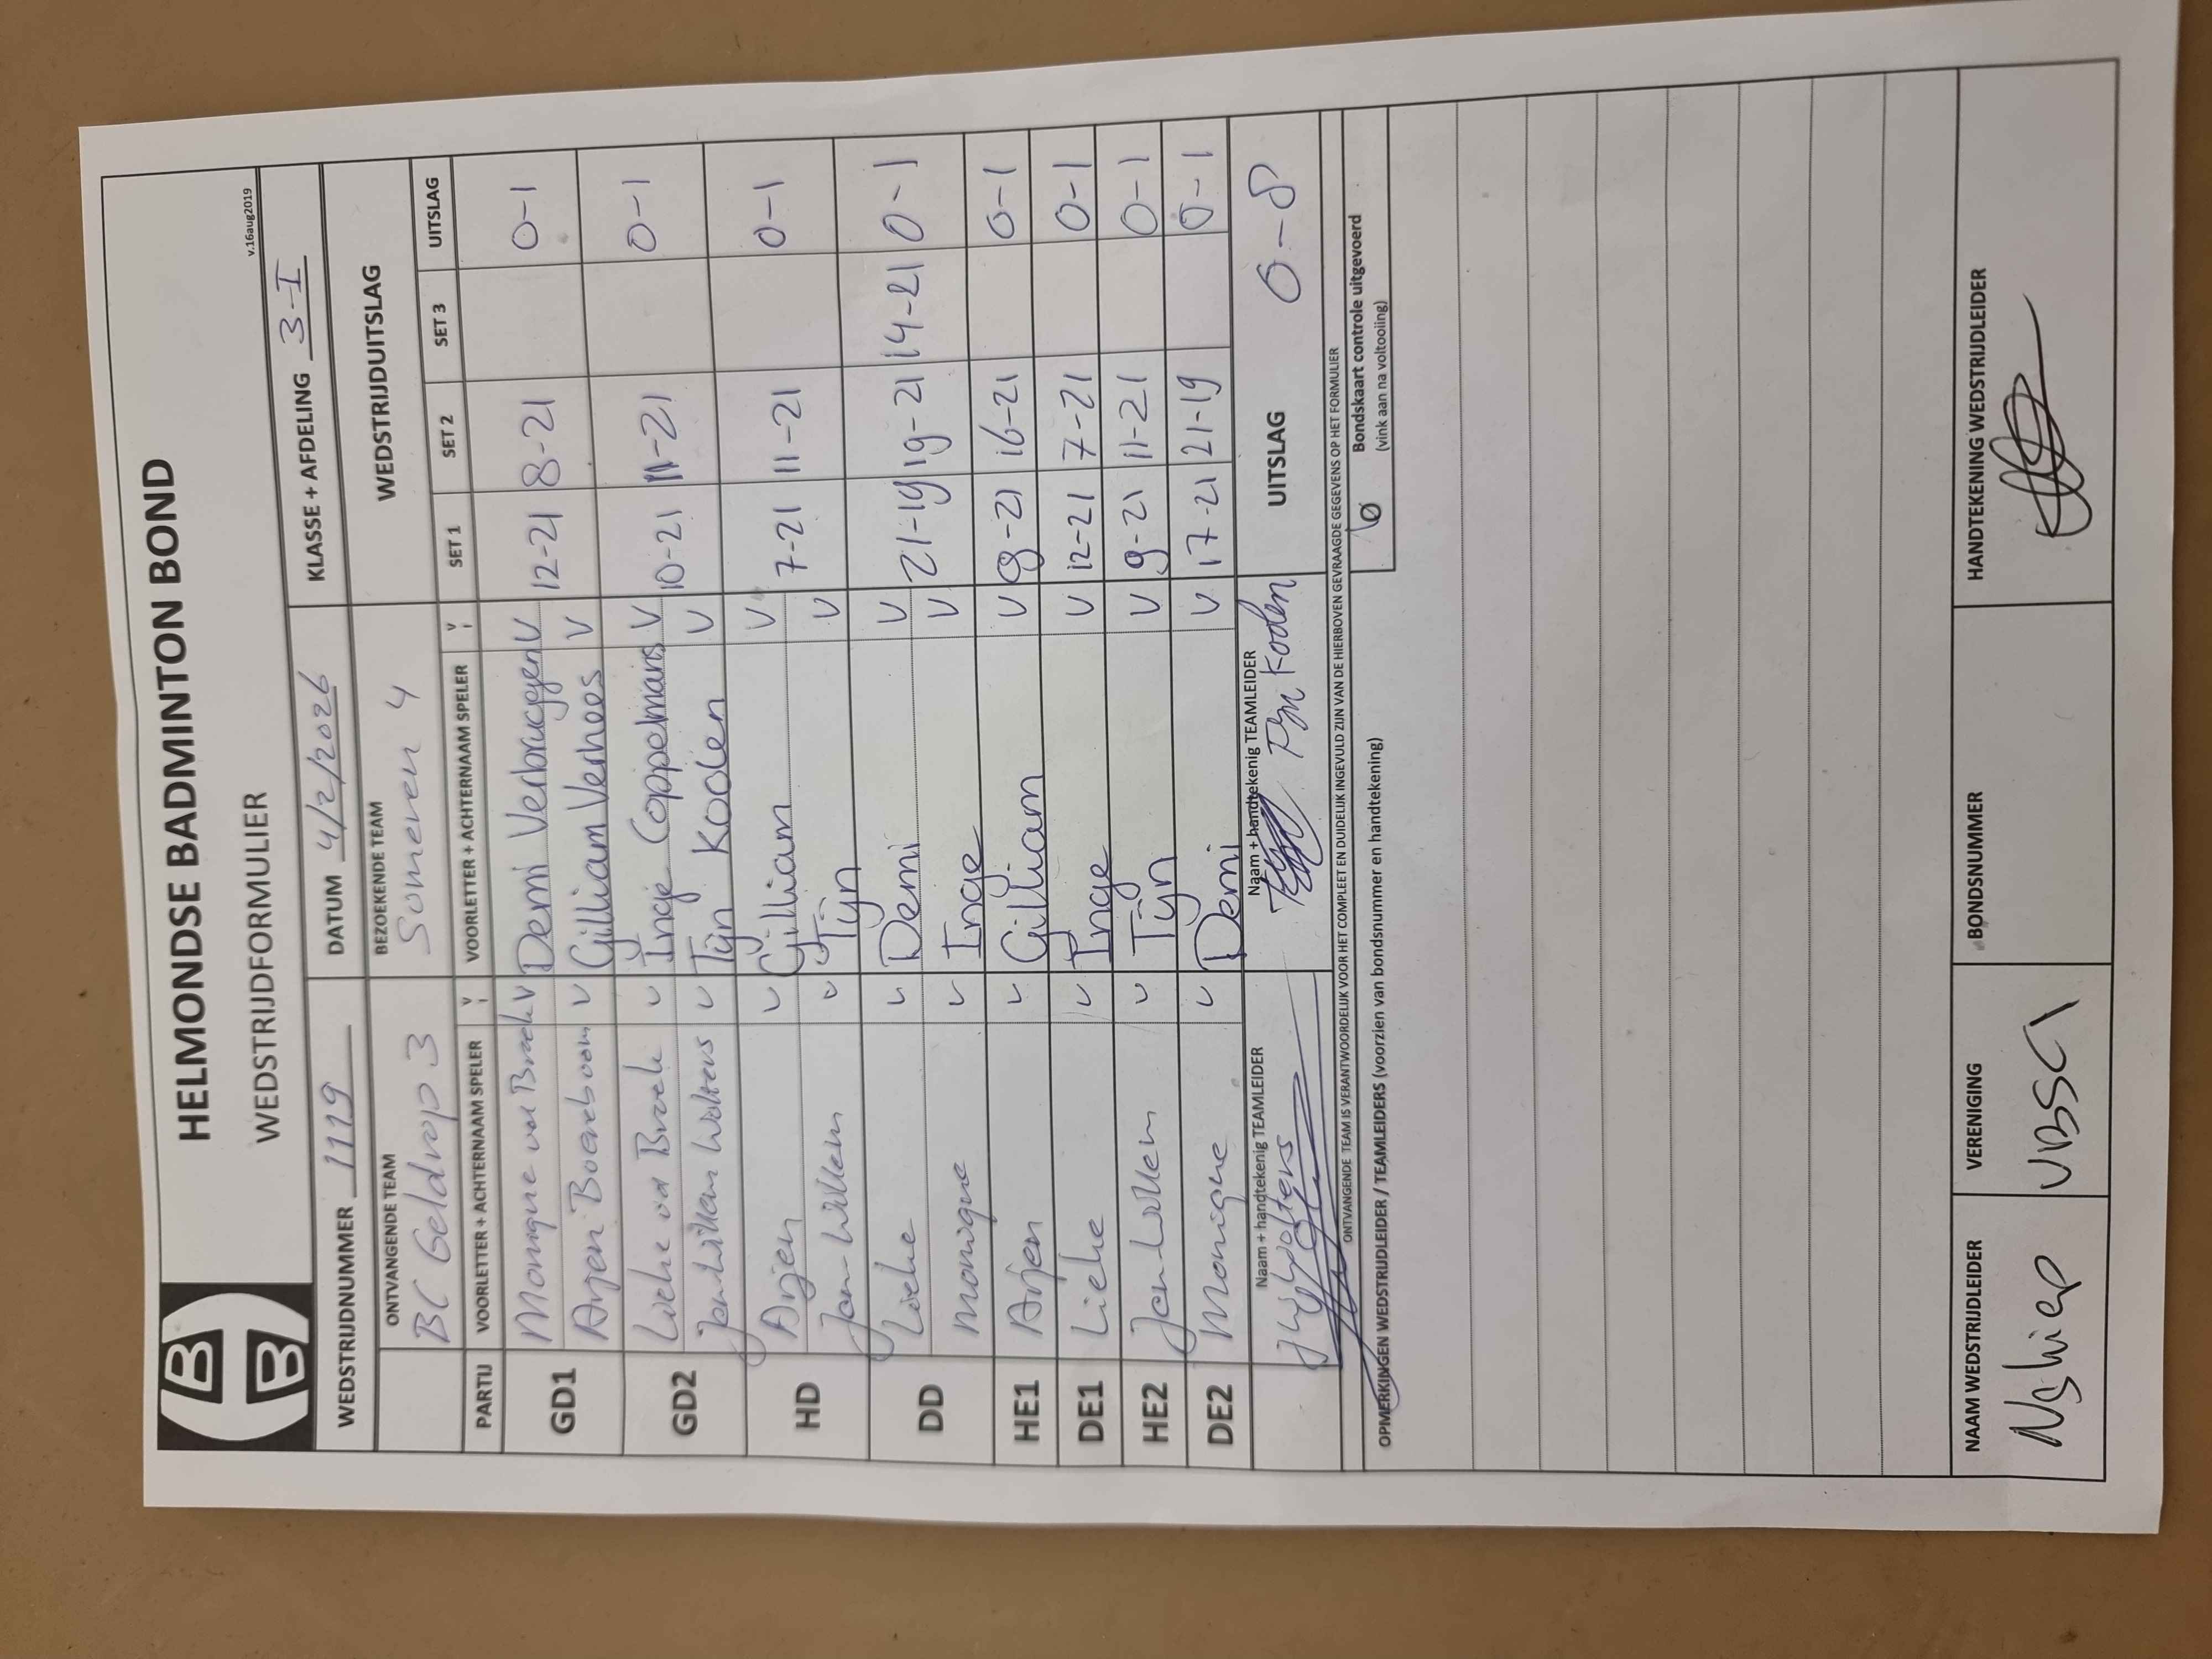 HELMONDSE BADMINTON BOND
WEDSTRIJDFORMULIER
v.16aug2019
WEDSTRIJDNUMMER 1119 DATUM 4/2/2026 KLASSE + AFDELING 3-I
ONTVANGENDE TEAM BEZOEKENDE TEAM WEDSTRIJDUITSLAG
BC Geldrop 3 Someren 4
PARTIJ VOORLETTER + ACHTERNAAM SPELER V VOORLETTER + ACHTERNAAM SPELER V SET 1 SET 2 SET 3 UITSLAG
GD1 Monique van Broek V Demi Verbruggen V 12-21 8-21 0-1
Arjen Boereboom V Gilliam Verhees V
GD2 Lieke vd Broek V Inge Coppelmans V 10-21 11-21 0-1
Jan Willem Wolters V Tijn Koolen V
HD Arjen V Gilliam V 7-21 11-21 0-1
Jan-Willem V Tijn V
DD Lieke V Demi V 21-19 19-21 14-21 0-1
Monique V Inge V
HE1 Arjen V Gilliam V 8-21 16-21 0-1
DE1 Lieke V Inge V 12-21 7-21 0-1
HE2 Jan-Willem V Tijn V 9-21 11-21 0-1
DE2 Monique V Demi V 17-21 21-19 0-1
Naam + handtekenig TEAMLEIDER Naam + handtekenig TEAMLEIDER UITSLAG 0-8
JW Wolters Tijn Koolen
ONTVANGENDE TEAM IS VERANTWOORDELIJK VOOR HET COMPLEET EN DUIDELIJK INGEVULD ZIJN VAN DE HIERBOVEN GEVRAAGDE GEGEVENS OP HET FORMULIER
OPMERKINGEN WEDSTRIJDLEIDER / TEAMLEIDERS (voorzien van bondsnummer en handtekening)
Bondskaart controle uitgevoerd
(vink aan na voltooiing)
NAAM WEDSTRIJDLEIDER VERENIGING BONDSNUMMER HANDTEKENING WEDSTRIJDLEIDER